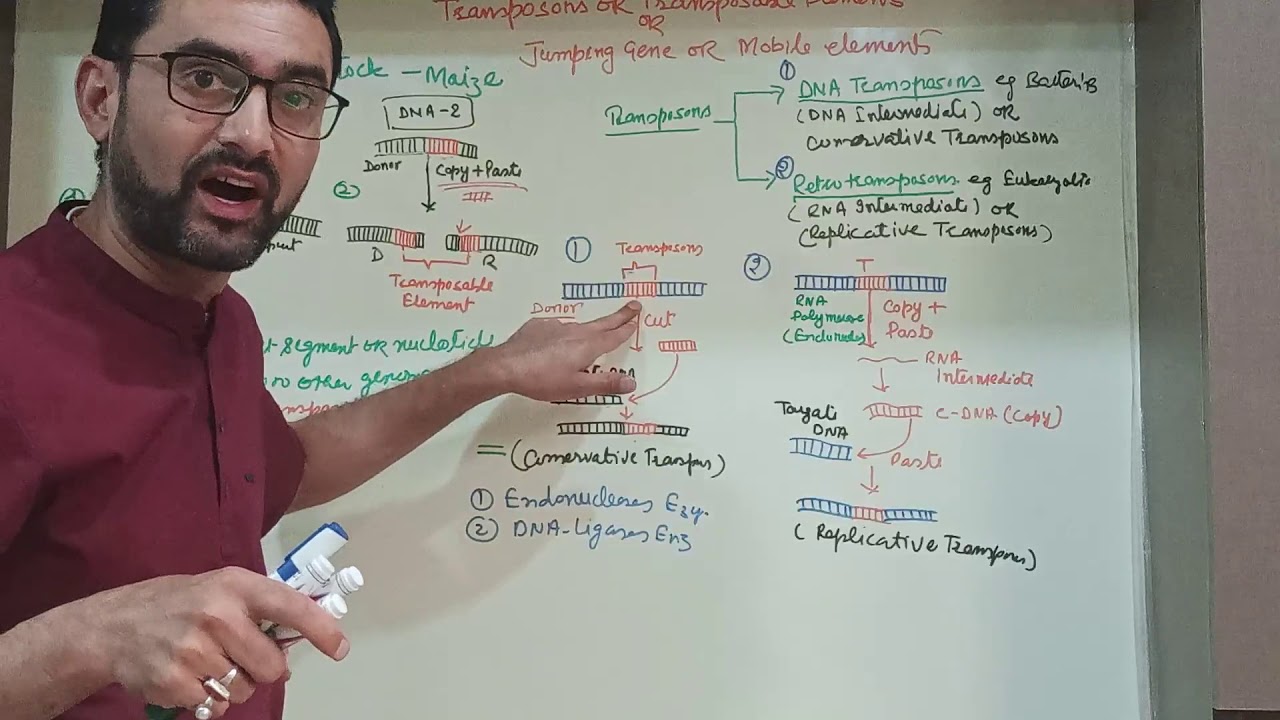 Transposons OR Transposable Elements
OR
Jumping Gene OR Mobile elements
tock – Maize
DNA-2
Donor
Copy + Paste
②
D
R
Transposable
Element
segment OR nucleotide
other genom
①
Transposons
Donor
Cut
= (Conservative Transpos)
① Endonucleases Ezy.
② DNA-Ligases Enz
Transposons
① DNA Transposons eg Bacteria
(DNA Intermediate) OR
Conservative Transposons
② Retrotransposons eg Eukaryotic
(RNA Intermediate) OR
(Replicative Transposons)
②
T
RNA
Polymerase
(Endonucles)
Copy +
Paste
RNA
Intermediate
C-DNA (Copy)
Target
DNA
Paste
(Replicative Transpons)